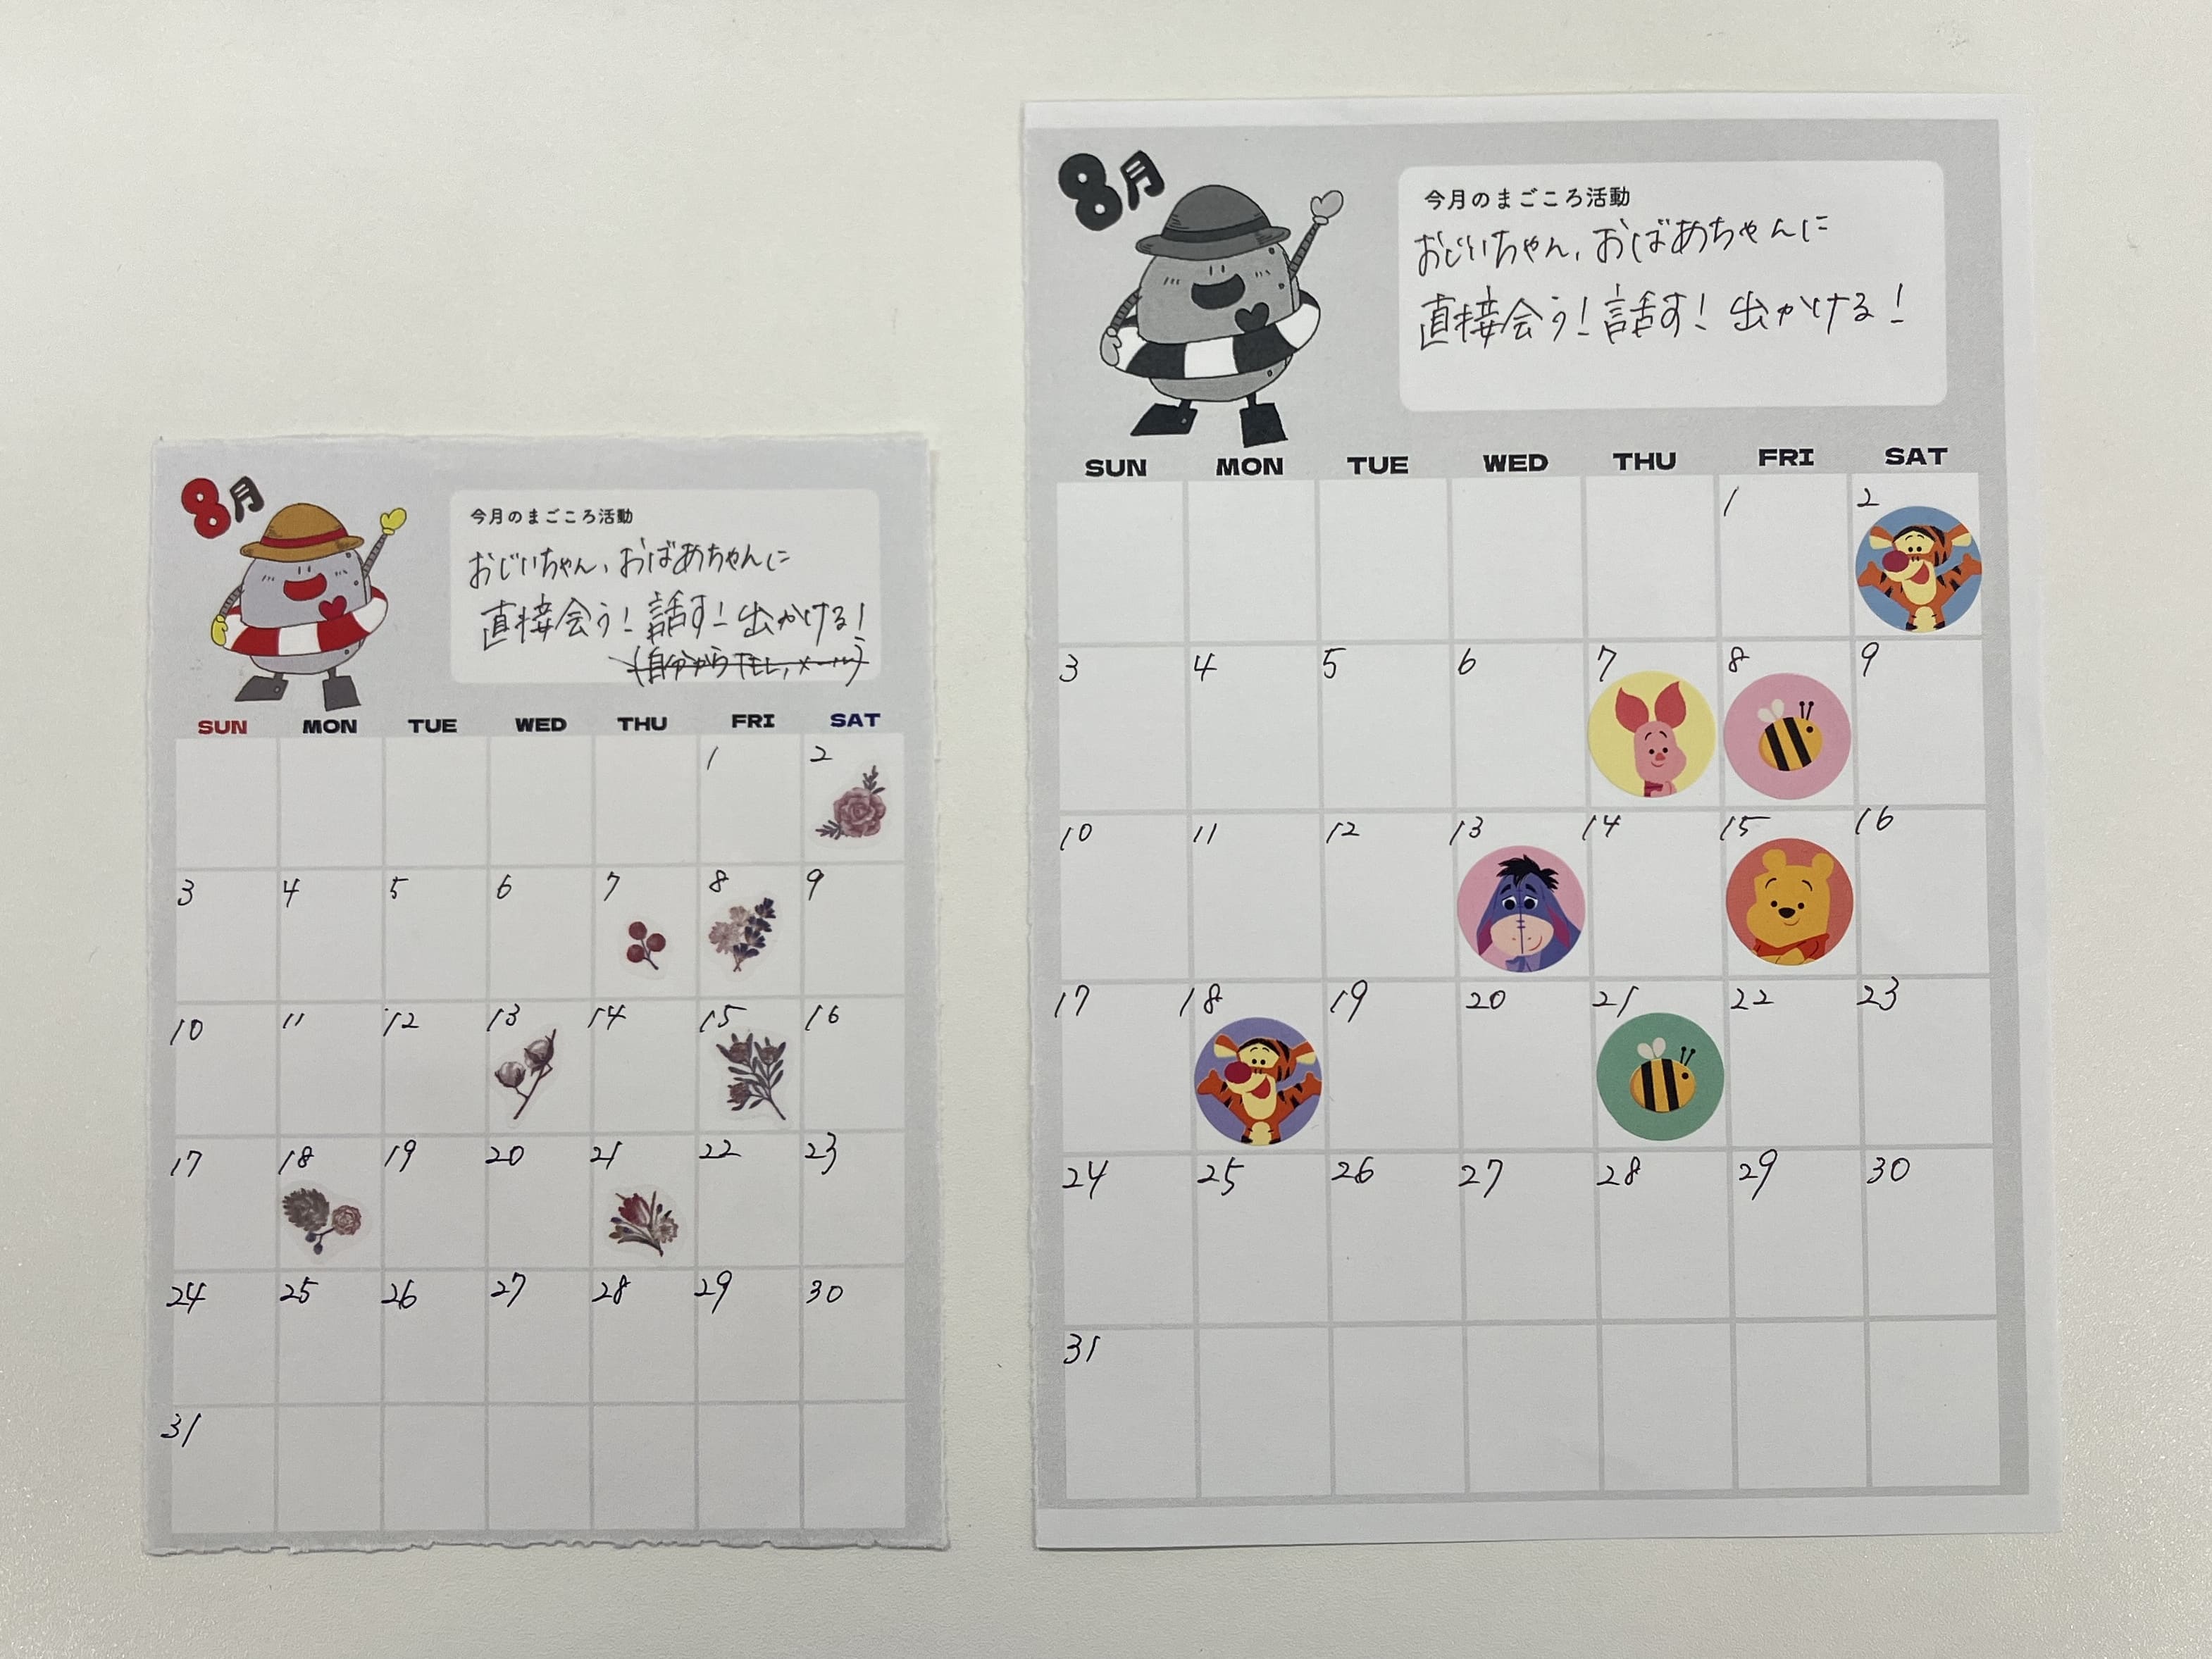 8月
今月のまごころ活動
おじいちゃん、おばあちゃんに
直接会う!話す!出かける!
(自分からTEL,メール)
SUN MON TUE WED THU FRI SAT
1 2
3 4 5 6 7 8 9
10 11 12 13 14 15 16
17 18 19 20 21 22 23
24 25 26 27 28 29 30
31
8月
今月のまごころ活動
おじいちゃん、おばあちゃんに
直接会う!話す!出かける!
SUN MON TUE WED THU FRI SAT
1 2
3 4 5 6 7 8 9
10 11 12 13 14 15 16
17 18 19 20 21 22 23
24 25 26 27 28 29 30
31